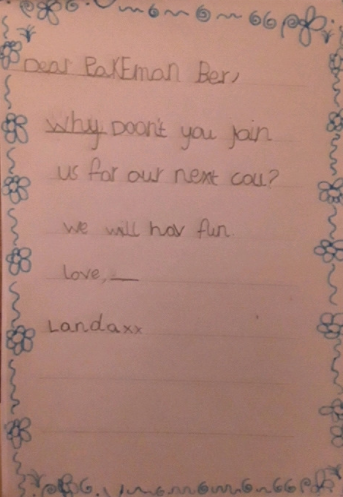 Dear PakEman Ber,
Why Doon't you join
us for our next cou?
we will hav fun
Love,
Landaxx